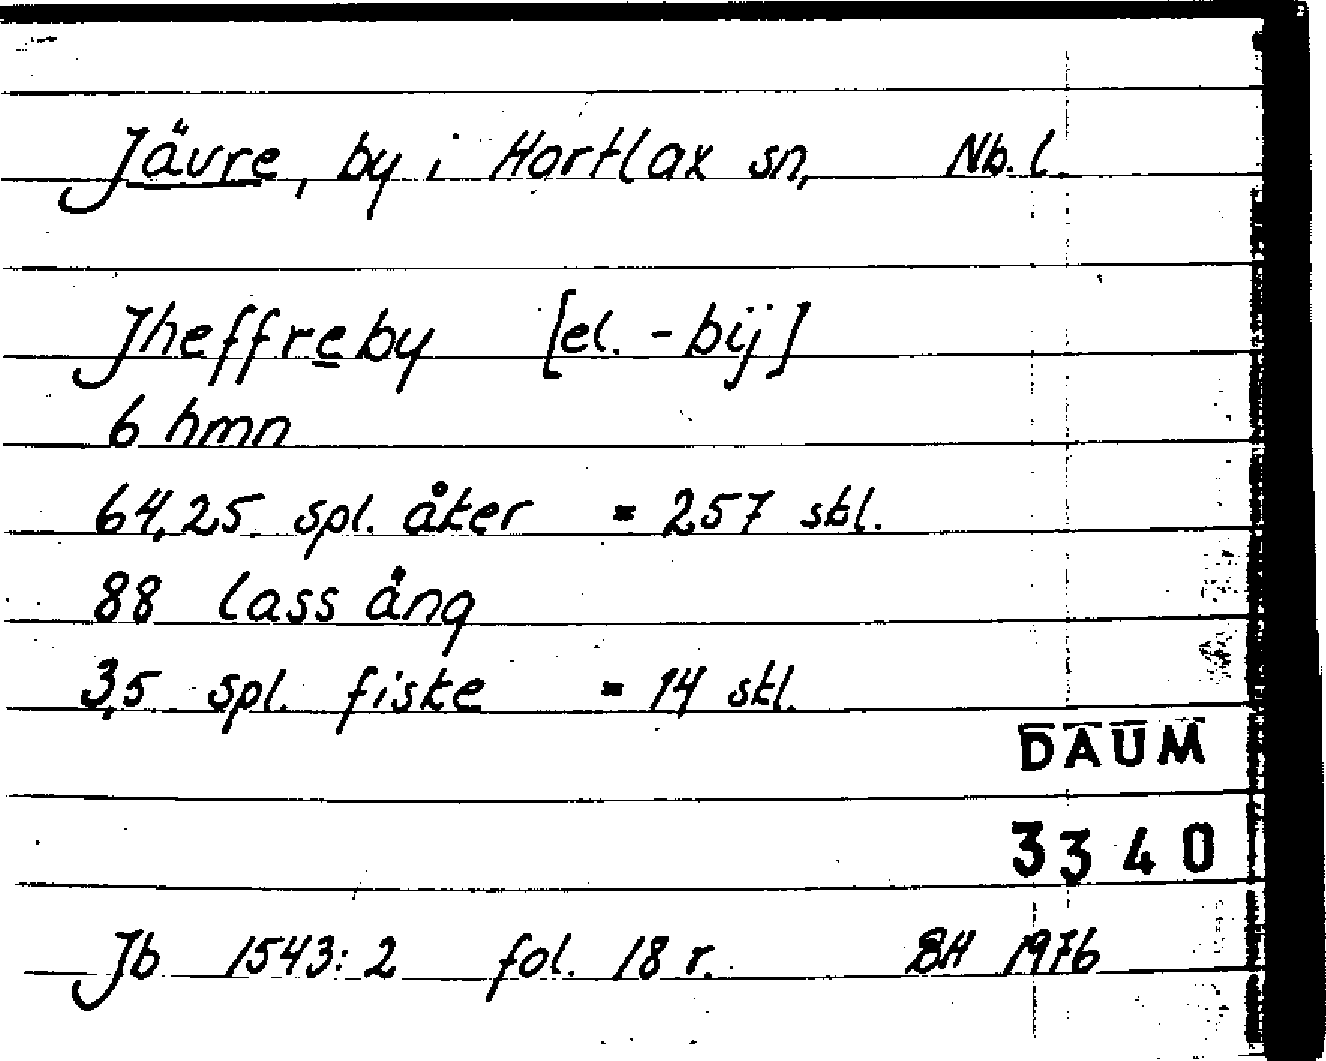 Jävre, by i Hortlax sn, Nb. l.
Jheffreby [el. -bij]
6 hmn
64,25 spl. åker = 257 skl.
88 lass äng
3,5 spl. fiske = 14 skl.
DAUM
3340
Jb 1543:2 fol. 18 r. BH 1976